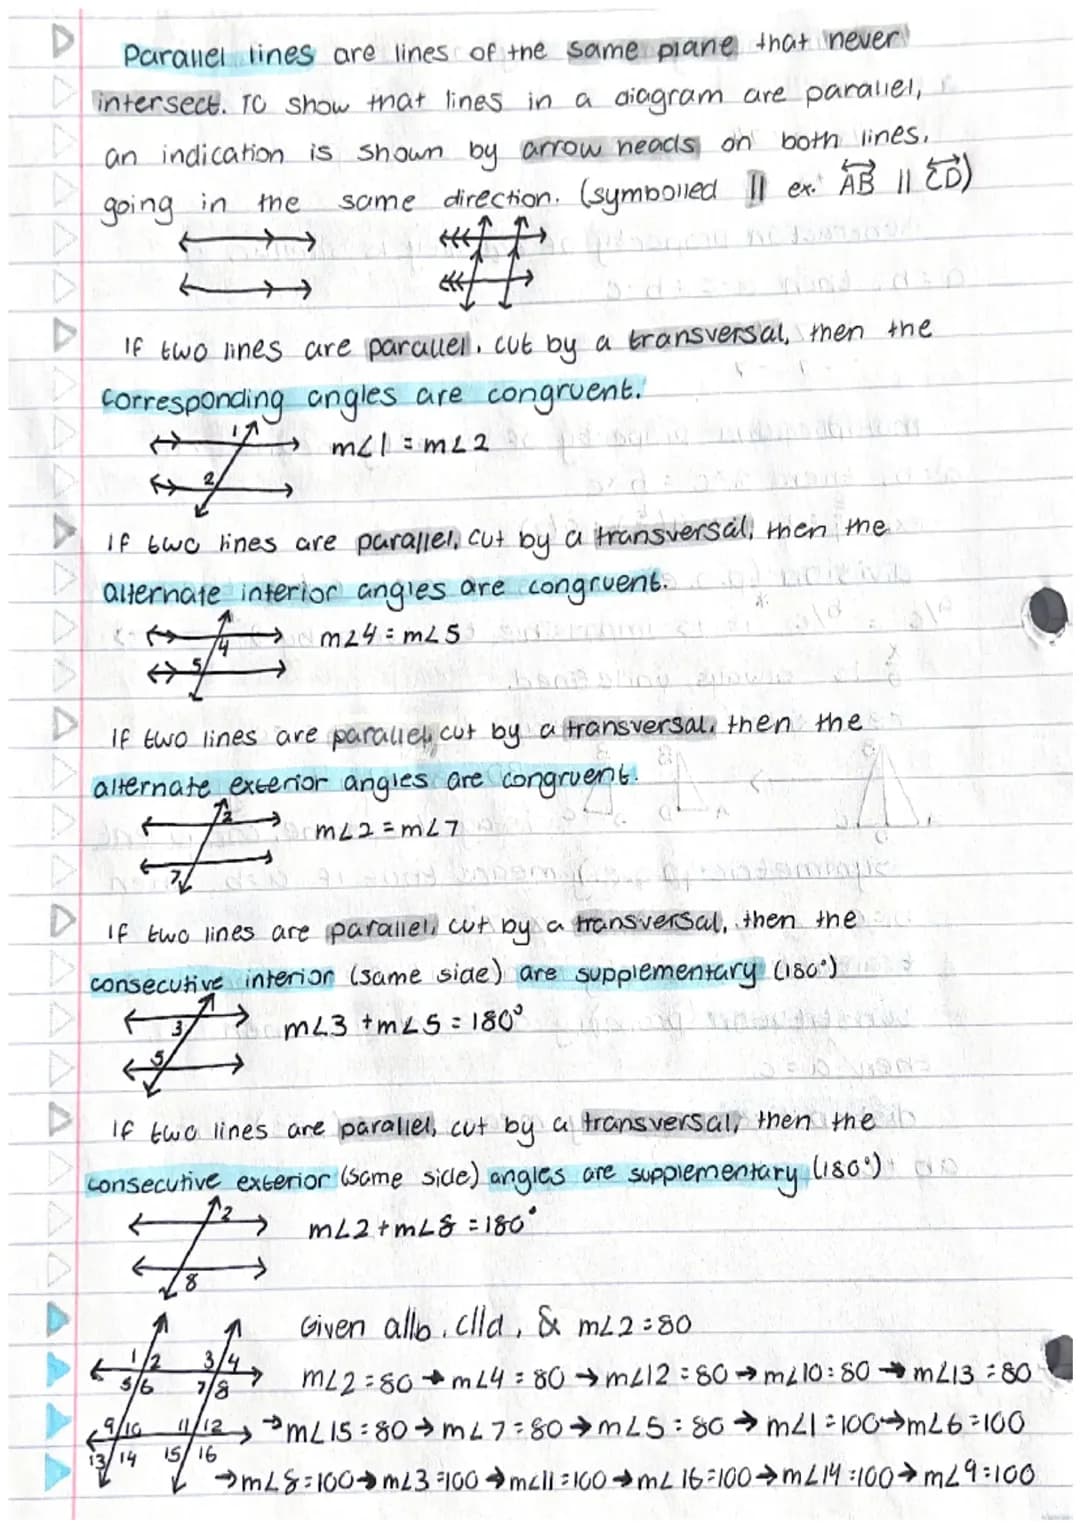 Parallel lines are lines of the same plane that never
intersect. To show that lines in a diagram are parallel,
an indication is shown by arrow heads on both lines.
going in the same direction. (symbolled || ex. AB || CD)
If two lines are parallel, cut by a transversal, then the
corresponding angles are congruent.
1
m∠1 = m∠2
2
If two lines are parallel, cut by a transversal, then the
alternate interior angles are congruent.
4
m∠4 = m∠5
5
If two lines are parallel, cut by a transversal, then the
alternate exterior angles are congruent.
2
m∠2 = m∠7
7
If two lines are parallel, cut by a transversal, then the
consecutive interior (same side) are supplementary (180°)
3
m∠3 + m∠5 = 180°
5
If two lines are parallel, cut by a transversal, then the
consecutive exterior (same side) angles are supplementary (180°)
2
m∠2 + m∠8 = 180°
8
Given a||b, c||d, & m∠2=80
1/2 3/4
5/6 7/8
m∠2=80 → m∠4=80 → m∠12=80 → m∠10=80 → m∠13=80
9/10 11/12
→ m∠15=80 → m∠7=80 → m∠5=80 → m∠1=100 → m∠6=100
13/14 15/16
→ m∠8=100 → m∠3=100 → m∠11=100 → m∠16=100 → m∠14=100 → m∠9=100